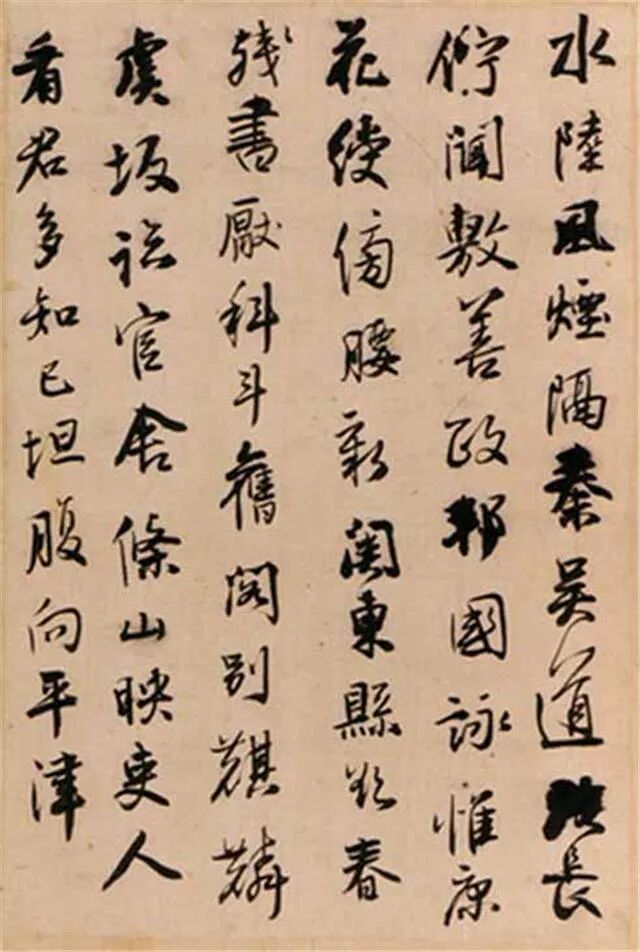 水陸風煙隔秦吳道路長
佇聞敷善政邦國詠惟康
花綬傍腰新關東縣欲春
殘書厭科斗舊閣別麒麟
虞坂臨官舍條山映吏人
看君多知己坦腹向平津